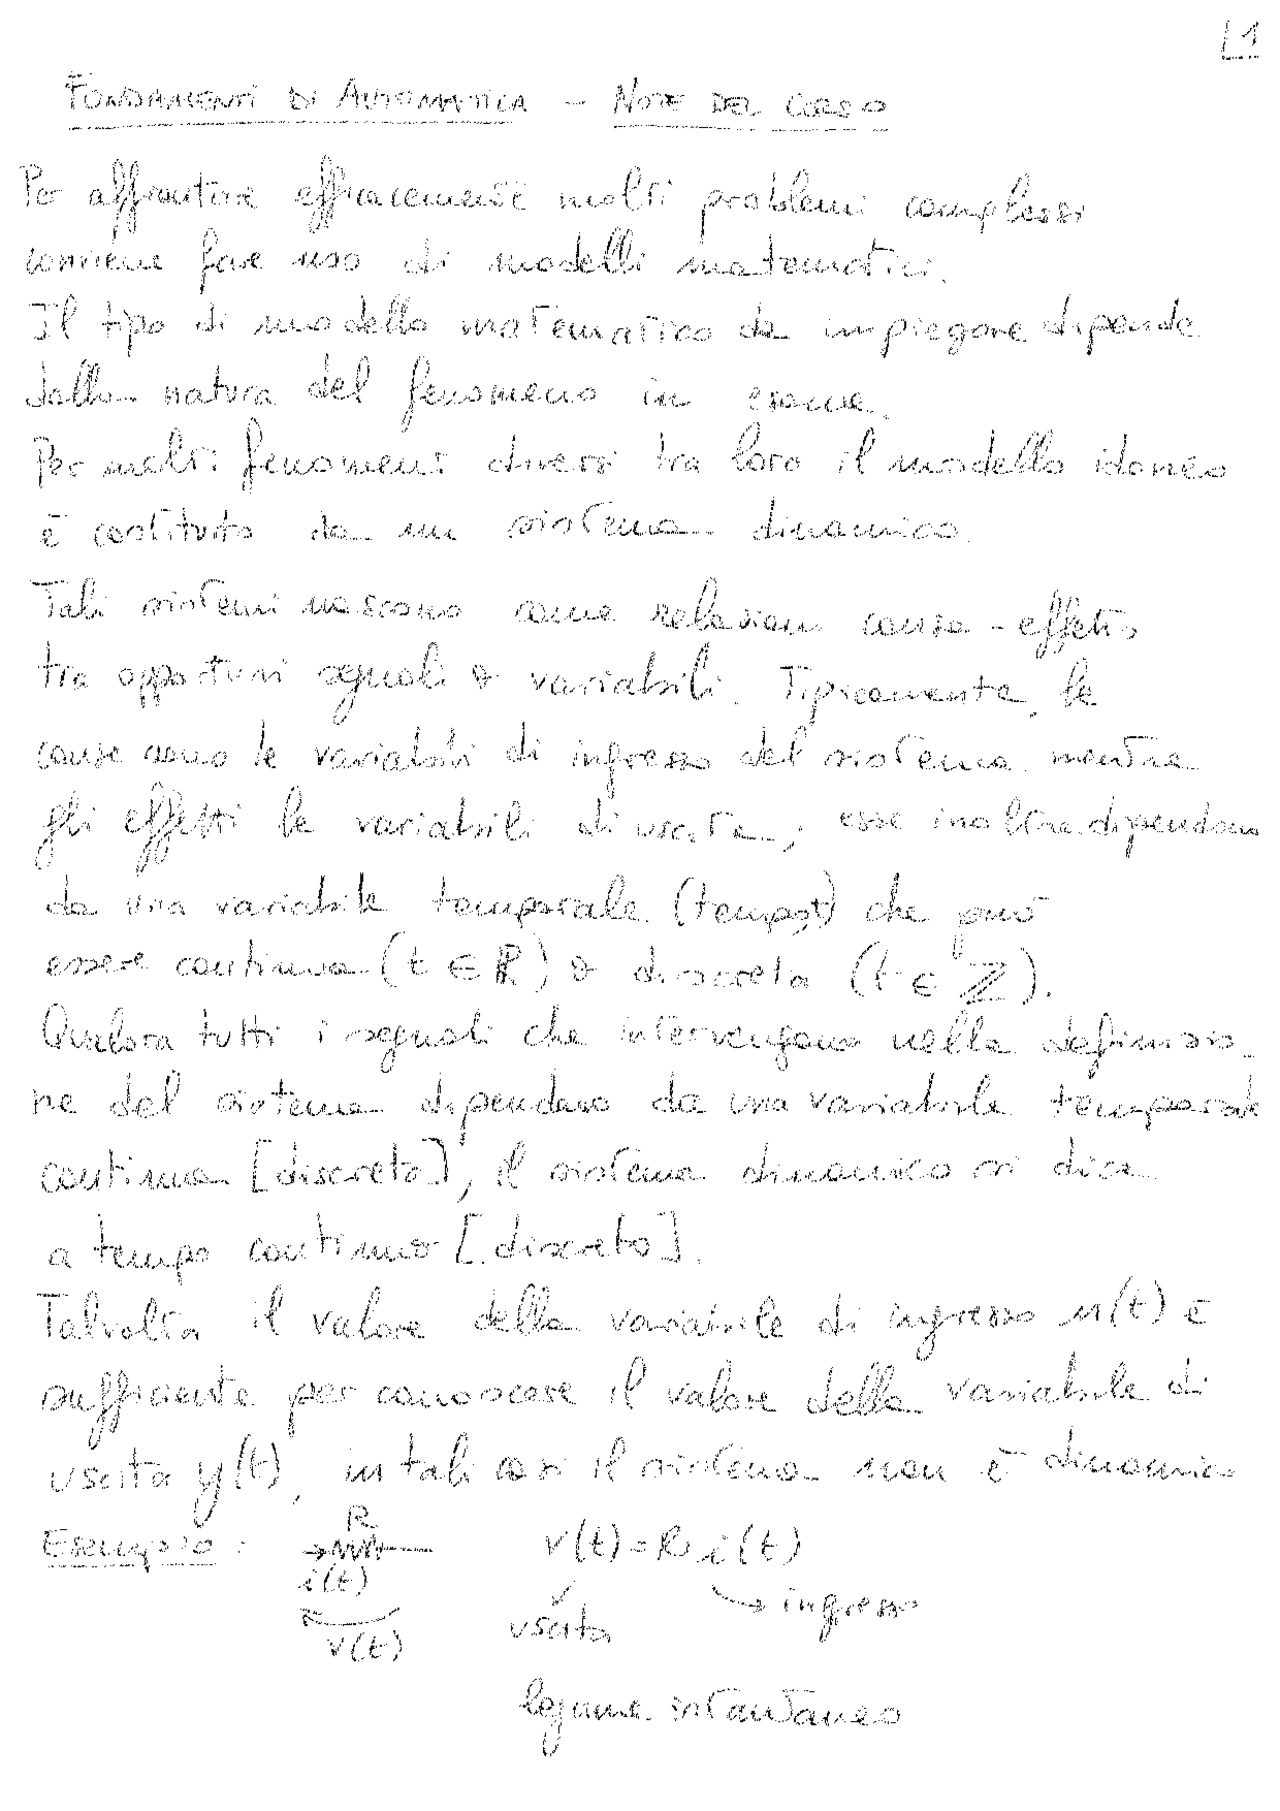 L1
FONDAMENTI DI AUTOMATICA - NOTE DEL CORSO
Per affrontare efficacemente molti problemi complessi
conviene fare uso di modelli matematici.
Il tipo di modello matematico da impiegare dipende
dalla natura del fenomeno in esame.
Per molti fenomeni diversi tra loro il modello idoneo
è costituito da un sistema dinamico.
Tali sistemi nascono come relazioni causa-effetto
tra opportuni segnali o variabili. Tipicamente, le
cause sono le variabili di ingresso del sistema mentre
gli effetti le variabili di uscita; esse inoltre dipendono
da una variabile temporale (tempo, t) che può
essere continua (t ∈ ℝ) o discreta (t ∈ ℤ).
Qualora tutti i segnali che intervengono nella definizio-
ne del sistema dipendano da una variabile temporale
continua [discreta], il sistema dinamico si dice
a tempo continuo [discreto].
Talvolta il valore della variabile di ingresso u(t) è
sufficiente per conoscere il valore della variabile di
uscita y(t), in tali casi il sistema non è dinamico
Esempio: R v(t) = R i(t)
i(t) → ingresso
v(t) uscita
legame istantaneo